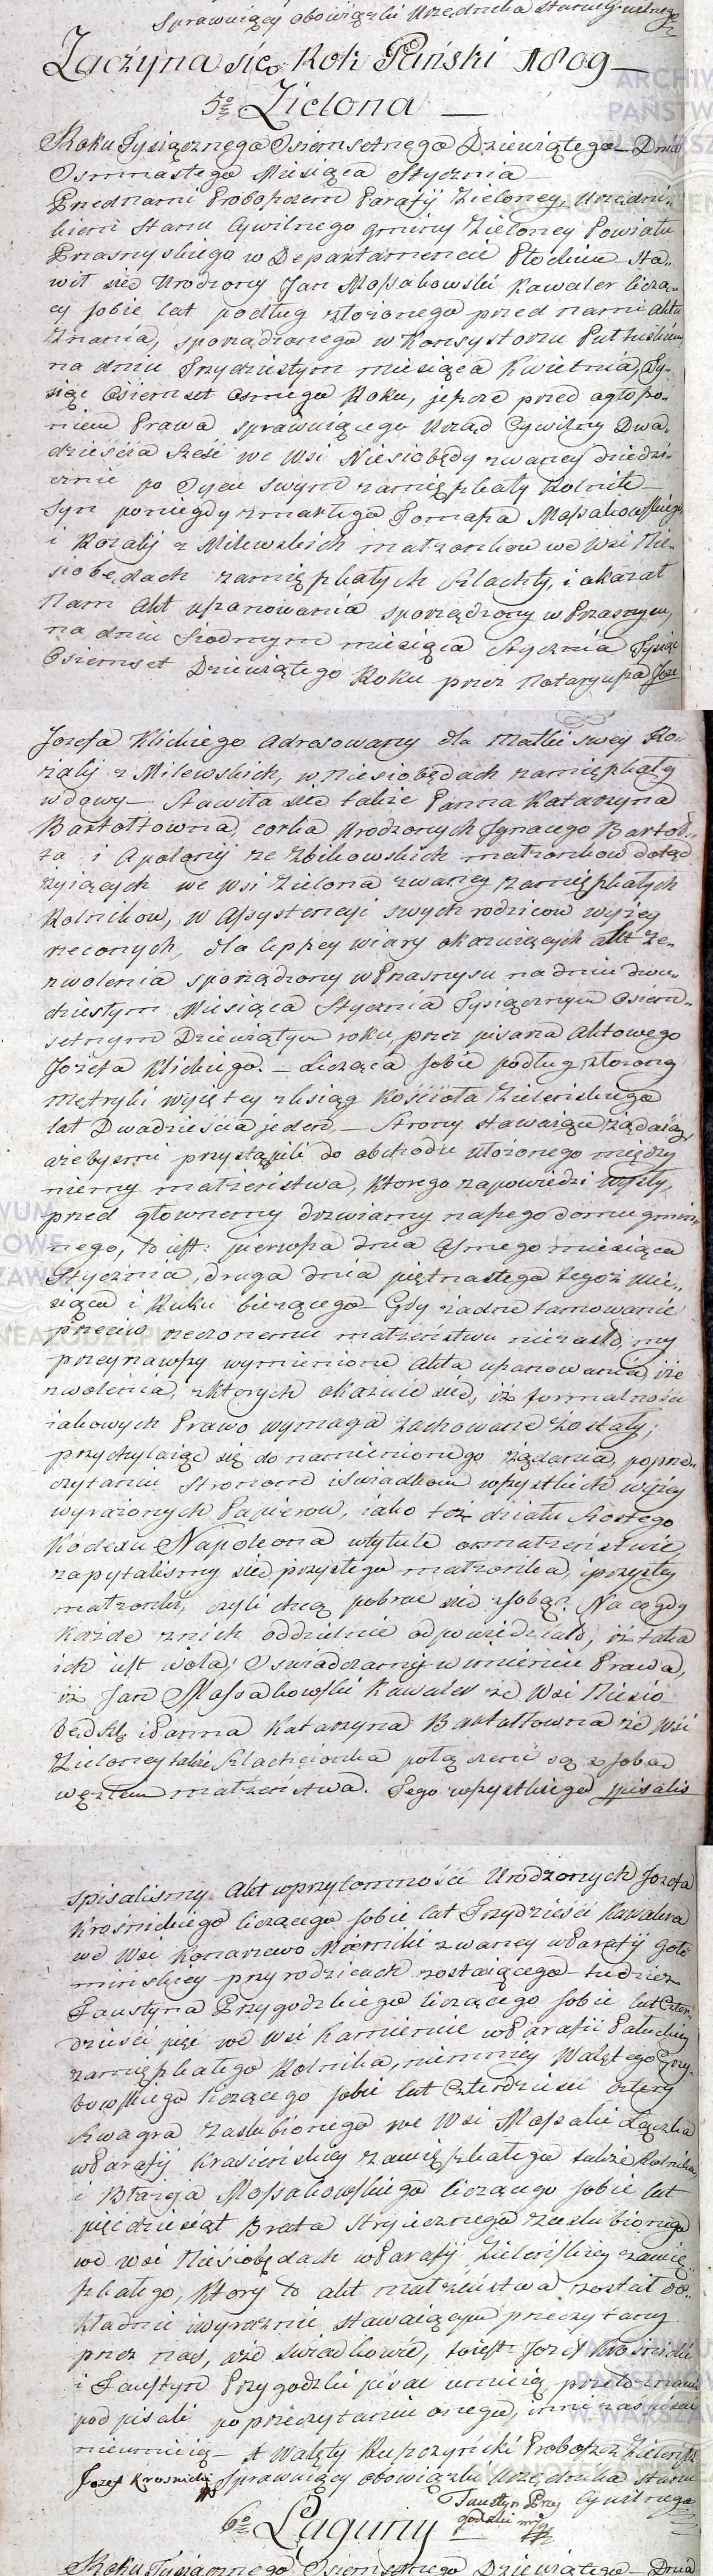 Sprawuiący obowiązki Urzędnika Stanu Cywilnego
Zaczyna się Rok Pański 1809 —
5o Zielona —
Roku Tysiącznego Osiemsetnego Dziewiątego — Dnia
Osmnastego Miesiąca Stycznia —
Przed nami Proboszczem Parafij Zieloney, Urzędni„
kiem Stanu Cywilnego gminy Zieloney Powiatu
Przasnyskiego w Departamencie Płockim — Sta„
wił sied Urodzony Jan Massakowski Kawaler liczą„
cy sobie lat podług złożonego przed nami aktu
Znania, sporządzonego w Konsystorzu Pułtuskim,
na dniu Trzydziestym miesiąca Kwietnia, Ty„
siąc Osiemset Osmego Roku, jeszcze przed ogłosze„
niem Prawa sprawuiącego Urząd Cywilny Dwa„
dzieścia Sześć we Wsi Niesiobędy zwaney dziedzi„
cznie po Oycu swym zamięszkały Rolnik —
Syn poniegdy zmarłego Tomasza Massakowskiego
i Rozalij z Milewskich małżonkow we Wsi Nie„
siobędach zamięszkałych Szlachty, i okazał
Nam Akt uszanowania sporządzony w Przasnyszu,
na dniu Siodmym miesiąca Stycznia Tysiąc
Osiemset Dziewiątego Roku przez Notaryusza Joze
Jozefa Klickiego adresowany dla Matki swey Ro„
zalij z Milewskich, w Niesiobędach zamięszkały
wdowy — Stawiła się także Panna Katarzyna
Bartołtowna, corka Urodzonych Jgnacego Bartoł„
ta i Apolonij ze Zbikowskich małżonkow dotąd
żyiących we Wsi Zielona zwaney zamięszkałych
Rolnikow, w Assystencyi swych rodzicow wyżey
rzeconych, dla lepszey wiary okazuiących akt Ze„
zwolenia sporządzony w Przasnyszu na dniu dwu„
dziestym Miesiąca Stycznia Tysiącznym Osiem„
setnym Dziewiątym roku, przez pisarza Aktowego
Jozefa Klickiego. — Licząca sobie podług złożoney
Metryki wyiętey z ksiąg Kościoła Zielenskiego
lat Dwadzieścia jeden — Strony stawaiące żądaią,
ażebysmi przystąpili do obchodu ułożonego między
niemy małżenstwa, ktorego zapowiedzi wyszły,
przed głownemy drzwiamy naszego domu gmin„
nego, to iest: pierwsza dnia Osmego miesiąca
Stycznia, druga dnia piętnastego tegoż mie„
siąca i Roku bieżącego — Gdy żadne tamowanie
przeciw rzeczonemu małżeństwu niezaszło, my
przyynawszy wymienione akta uszanowania i ze
zwolenia, z ktorych okazuie sied, iż formalności
iakowych Prawo wymaga zachowane zostały;
przychylaiąc się do namienionego żądania, po prze„
czytaniu Stronom i świadkom wszystkich wyżey
wyrażonych Papierow, iako też działu Szostego
Kodexu Napoleona w tytule o małżenstwie
zapytalismy sied przyszłego małżonka, i przyszłey
małżonki, czyli chcą pobrać sied z sobą? Na co gdy
każde z nich oddzielnie odpowiedziało, iż taka
ich iest wola; Oswiadczamy w imieniu Prawa,
iż Jan Massakowski Kawaler ze Wsi Niesio
będ Szl. i Panna Katarzyna Bartołtowna ze Wsi
Zieloney także Szlachcionka połączeni są z sobą
węzłem małżenstwa. Tego wszystkiego spisalis
spisalismy Akt w przytomności Urodzonych Jozefa
Krośnickiego liczącego sobie lat Trzydzieści Kawalera
we Wsi Konarzewo Mierniki zwaney w Parafij goły
minskiey przy rodzicach zostaiącego — tudzież
Faustyna Przygodzkiego liczącego sobie lat Czter„
dzieści pięć we Wsi Kamienice w Parafii Pałuckiey
zamięszkałego Rolnika, niemniey Walętego Grzy„
bowskiego liczącego sobie lat Czterdzieści cztery
Szwagra zaslubionego we Wsi Massaki Łączka
w Parafij Krasieńskiey zamięszkałego także Rolnika,
i Błażeja Massakowskiego liczącego sobie lat
pięćdziesiąt Brata Stryiecznego zaslubionego
we wsi Niesiobędach w Parafij Zielenskiey zamię„
szkałego, Ktory to akt małżeństwa został do„
kładnie i wyraznie, stawaiącym przeczytany
przez nas, a że swiadkowie, to iest: Jozef Krosnicki
i Faustyn Przygodzki pisać umieią, przeto z nami
podpisali po przeczytaniu onego, inni zas pisać
nieumieią — X Walęty Kupczyński Proboszcz Zielenski
Jozef Krosnicki Sprawuiący obowiązki Urzędnika Stanu
Cywilnego
Faustyn Przy
godzki mp
6o Łaguny
Roku Tysiącznego Osiemsetnego Dziewiątego — Dnia